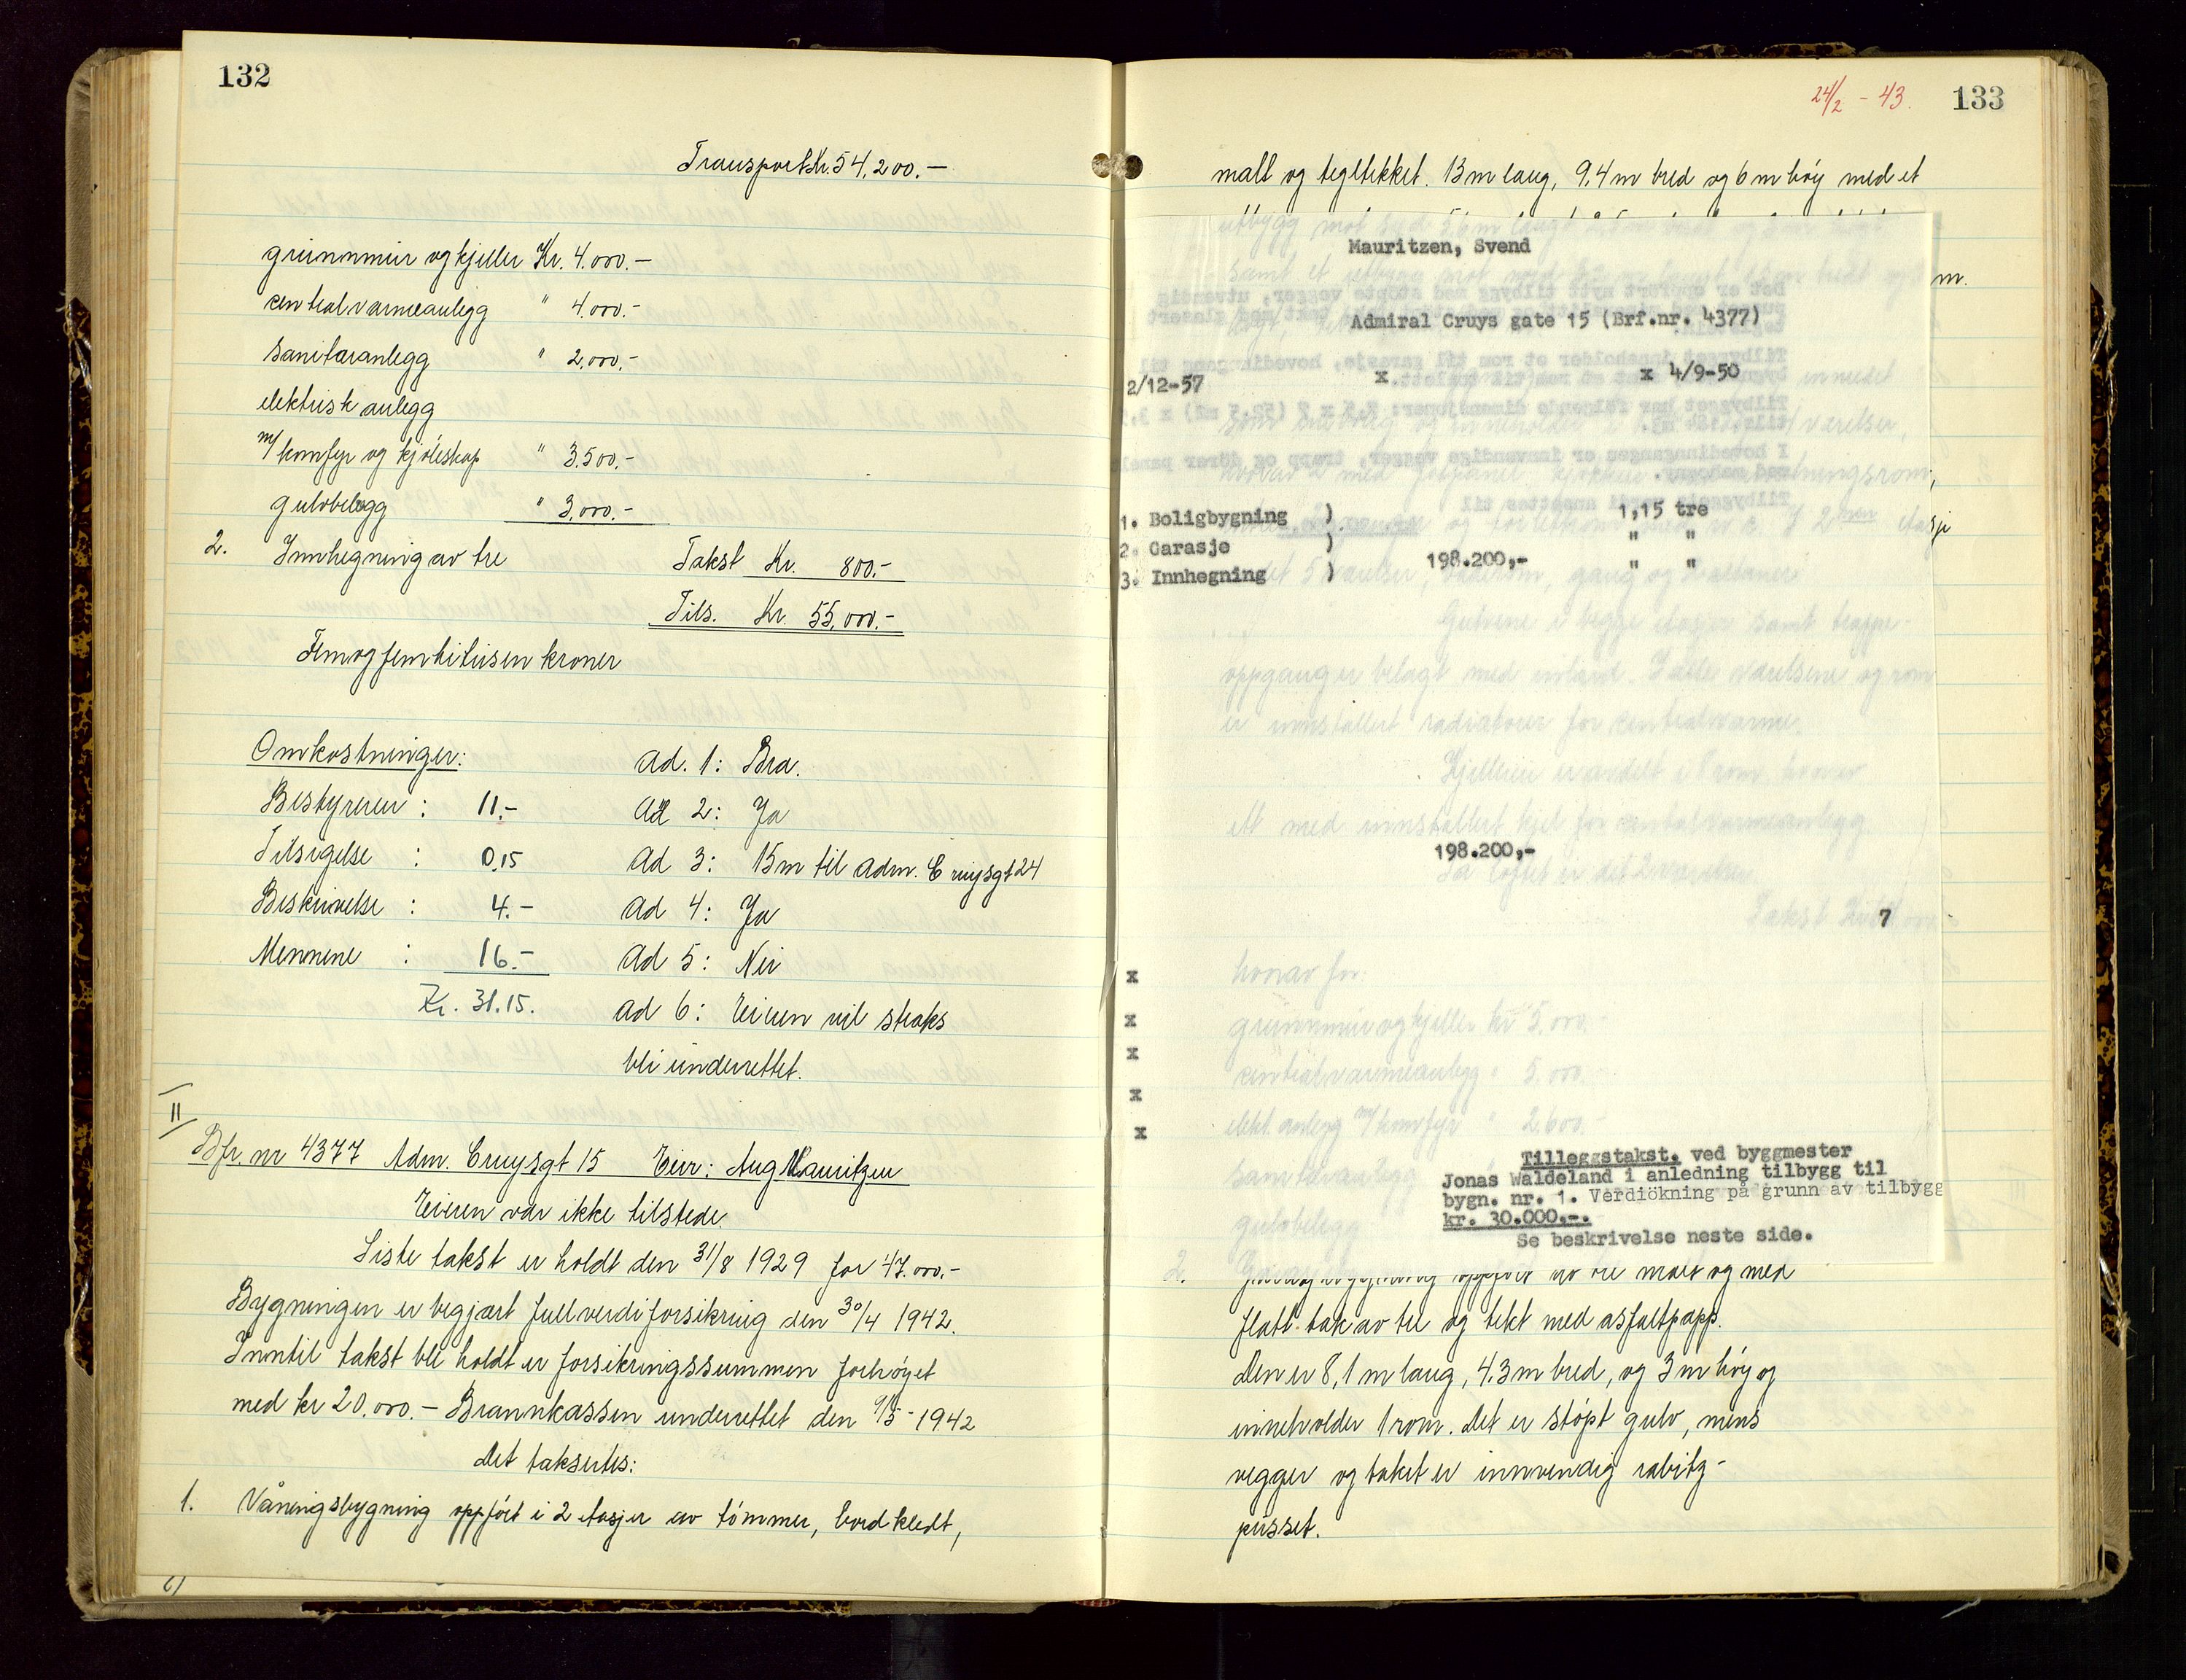 132
Transport Kr. 54.200.-
grunnmur og kjeller Kr. 4.000.-
centralvarmeanlegg " 4.000.-
sanitæranlegg " 2.000.-
elektrisk anlegg
m/ komfyr og kjøleskap " 3.500.-
gulvbelegg " 3.000.-
2. Innhegning av tre Takst Kr. 800.-
Tils. Kr. 55.000.-
Femogfemtitusen kroner
Omkostninger:
Bestyreren : 11.-
Tilsigelse : 0,15
Beskrivelse : 4.-
Mennene : 16.-
Kr. 31.15.
Ad. 1: Bra.
Ad 2: Ja
Ad 3: 15 m til Adm. Cruysgt 24
Ad 4: Ja
Ad 5: Nei
Ad 6: Eieren vil straks
bli underrettet.
II
Bfr. nr 4377 Adm. Cruysgt 15 Eier: Aug Mauritzen
Eieren var ikke tilstede.
Siste takst er holdt den 31/8 1929 for 47.000.-
Bygningen er begjært fullverdiforsikring den 30/4 1942.
Inntil takst ble holdt er forsikringssummen forhøyet
med kr 20.000.- Brannkassen underrettet den 9/5-1942
Det takseres:
1. Våningsbygning oppført i 2 etasjer av tømmer, bordkledt,
24/2 - 43.
133
malt og tegltekket. 13 m lang, 9.4 m bred og 6 m høy med et
m.
Mauritzen, Svend
Admiral Cruys gate 15 (Brf.nr. 4377)
2/12-57 x x 4/9-50
1. Boligbygning ) 1,15 tre
2. Garasje ) " "
3. Innhegning ) 198.200,- " "
oppganger belagt med innlaid. I alle værelsene og rom
er innstallert radiatorer for centralvarme.
Kjelleren er avdelt i 8 rom, hvorav
ett med innstallert kjel for centralvarmeanlegg
198.200,-
På loftet er det 2 værelser.
7
x
x
x
x
x
hvorav for:
grunnmur og kjeller kr 5.000.-
centralvarmeanlegg " 5.000.-
elekt. anlegg m/ komfyr " 2.600.-
sanitæranlegg
gulvbelegg
Tilleggstakst. ved byggmester
Jonas Waldeland i anledning tilbygg til
bygn. nr. 1. Verdiökning på grunn av tilbygg
kr. 30.000.-.
Se beskrivelse neste side.
2. oppført av tre malt og med
flatt tak av tre og tekt med asfaltpapp.
Den er 8,1 m lang, 4.3 m bred, og 3 m høy og
inneholder 1 rom. Det er støpt gulv, mens
vegger og taket er innvendig rabitz-
pusset.